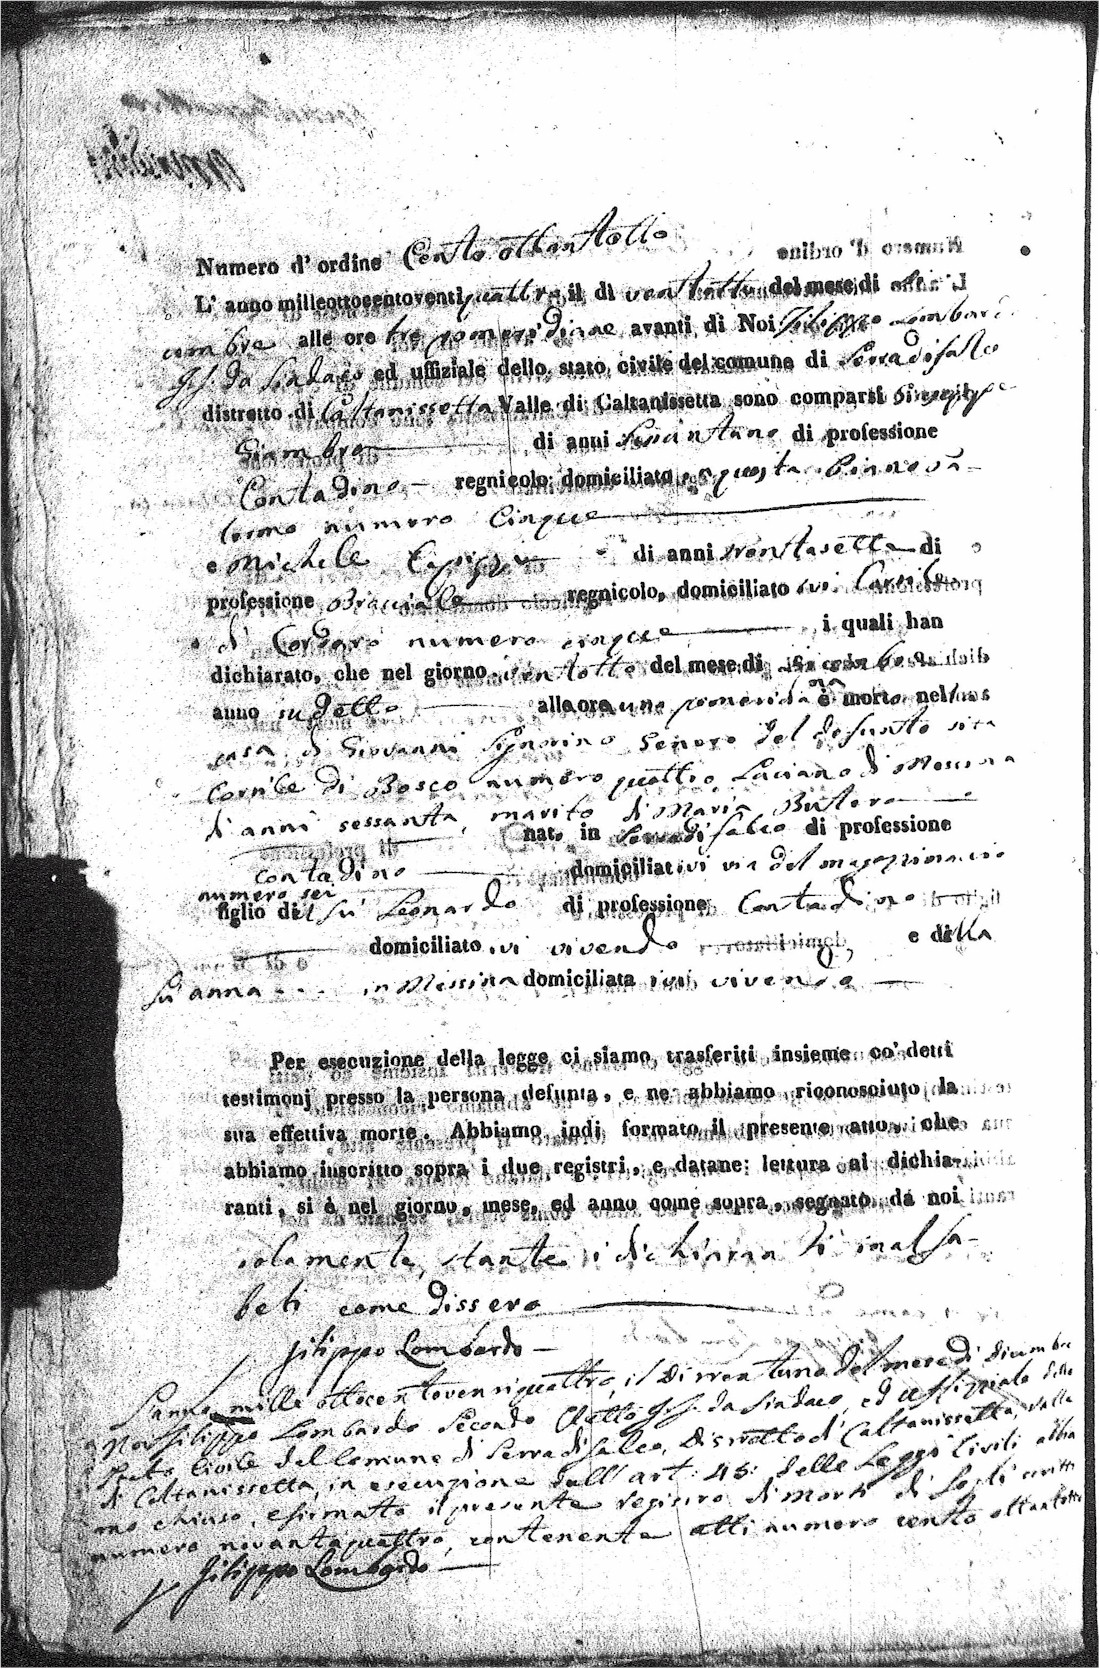 Numero d' ordine Cento ottantotto
L' anno milleottocentoventiquattro il di ventotto del mese di
cembre alle ore tre pomeridiane avanti di Noi Filippo Lombardo
ff. da Sindaco ed uffiziale dello stato civile del comune di Serradifalco
distretto di Caltanissetta Valle di Caltanissetta sono comparsi Giuseppe
Giambra di anni di professione
Contadino regnicolo domiciliato questa
numero Cinque
e Michele di anni trentasette di
professione Bracciale regnicolo, domiciliato ivi Cortile
di numero cinque i quali han
dichiarato, che nel giorno ventotto del mese di
anno sudetto alle ore una pomeridiana è morto nella
casa di Giovanni Signorino Genero del defunto sita
Cortile di Bosco numero quattro Luciano di Messina
di anni sessanta, marito di Maria Butera
nato in Serradifalco di professione
Contadino domiciliato ivi via del
numero sei
figlio di fu Leonardo di professione Contadino
domiciliato ivi vivendo e di lla
fu anna . . . in Messina domiciliata ivi vivendo
Per esecuzione della legge ci siamo trasferiti insieme co' detti
testimonj presso la persona defunta, e ne abbiamo riconosciuto la
sua effettiva morte. Abbiamo indi formato il presente atto, che
abbiamo inscritto sopra i due registri, e datane lettura ai dichia-
ranti, si è nel giorno, mese, ed anno come sopra, segnato da noi
solamente, stante i dichiaranti inalfa-
beti come dissero
Filippo Lombardo
L'anno mille ottocentoventiquattro, il di trentuno del mese di Dicembre
Noi Filippo Lombardo Secondo Eletto ff. da Sindaco, ed uffiziale dello
stato Civile del Comune di Serradifalco, Distretto di Caltanissetta, Valle
di Caltanissetta, in esecuzione dell' art: 45: delle Leggi Civili abbia
mo chiuso, e firmato il presente registro di morti di fogli scritti
numero novantaquattro, contenente atti numero cento ottantotto
Filippo Lombardo